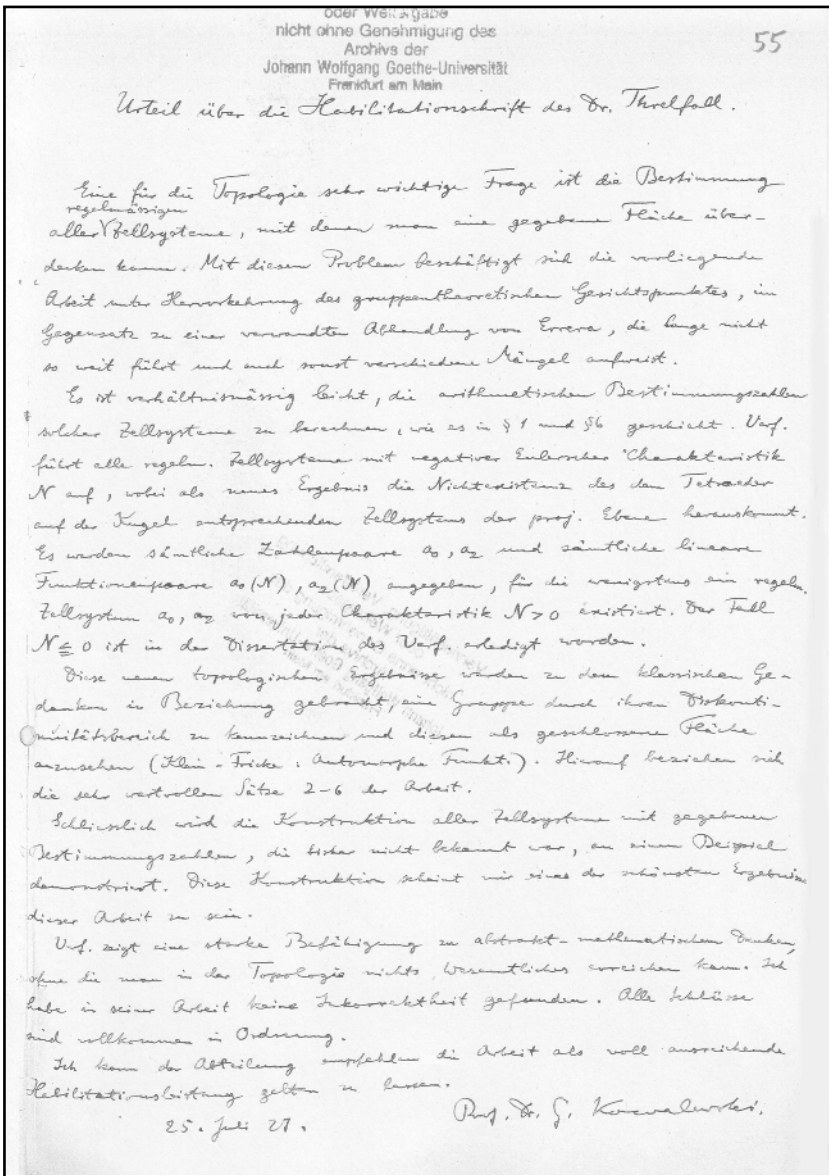 oder Weitergabe
nicht ohne Genehmigung des
Archivs der
Johann Wolfgang Goethe-Universität
Frankfurt am Main
55
Urteil über die Habilitationsschrift des Dr. Threlfall.
Eine für die Topologie sehr wichtige Frage ist die Bestimmung
regelmässigen
aller Zellsysteme, mit denen man eine gegebene Fläche über-
decken kann. Mit diesem Problem beschäftigt sich die vorliegende
Arbeit unter Hervorkehrung des gruppentheoretischen Gesichtspunktes, im
Gegensatz zu einer verwandten Abhandlung von Errera, die lange nicht
so weit führt und auch sonst verschiedene Mängel aufweist.
Es ist verhältnismässig leicht, die arithmetischen Bestimmungszahlen
solcher Zellsysteme zu berechnen, wie es in § 1 und § 6 geschieht. Verf.
führt alle regelm. Zellsysteme mit negativer Eulerscher Charakteristik
N auf, wobei als neues Ergebnis die Nichtexistenz des dem Tetraeder
auf der Kugel entsprechenden Zellsystems der proj. Ebene herauskommt.
Es werden sämtliche Zahlenpaare a₀, a₂ und sämtliche lineare
Funktionenpaare a₀(N), a₂(N) angegeben, für die wenigstens ein regelm.
Zellsystem a₀, a₂ von jeder Charakteristik N>0 existiert. Der Fall
N ≦ 0 ist in der Dissertation des Verf. erledigt worden.
Diese neuen topologischen Ergebnisse werden zu dem klassischen Ge-
danken in Beziehung gebracht, eine Gruppe durch ihren Diskonti-
nuitätsbereich zu kennzeichnen und diesen als geschlossene Fläche
anzusehen (Klein-Fricke: Automorphe Funkt.). Hierauf beziehen sich
die sehr wertvollen Sätze 2-6 der Arbeit.
Schliesslich wird die Konstruktion aller Zellsysteme mit gegebenen
Bestimmungszahlen, die bisher nicht bekannt war, an einem Beispiel
demonstriert. Diese Konstruktion scheint mir eines der schönsten Ergebnisse
dieser Arbeit zu sein.
Verf. zeigt eine starke Befähigung zu abstrakt-mathematischem Denken,
ohne die man in der Topologie nichts Wesentliches erreichen kann. Ich
habe in seiner Arbeit keine Inkorrektheit gefunden. Alle Schlüsse
sind vollkommen in Ordnung.
Ich kann der Abteilung empfehlen die Arbeit als voll ausreichende
Habilitationsleistung gelten zu lassen.
25. Juli 27.
Prof. Dr. G. Kowalewski.